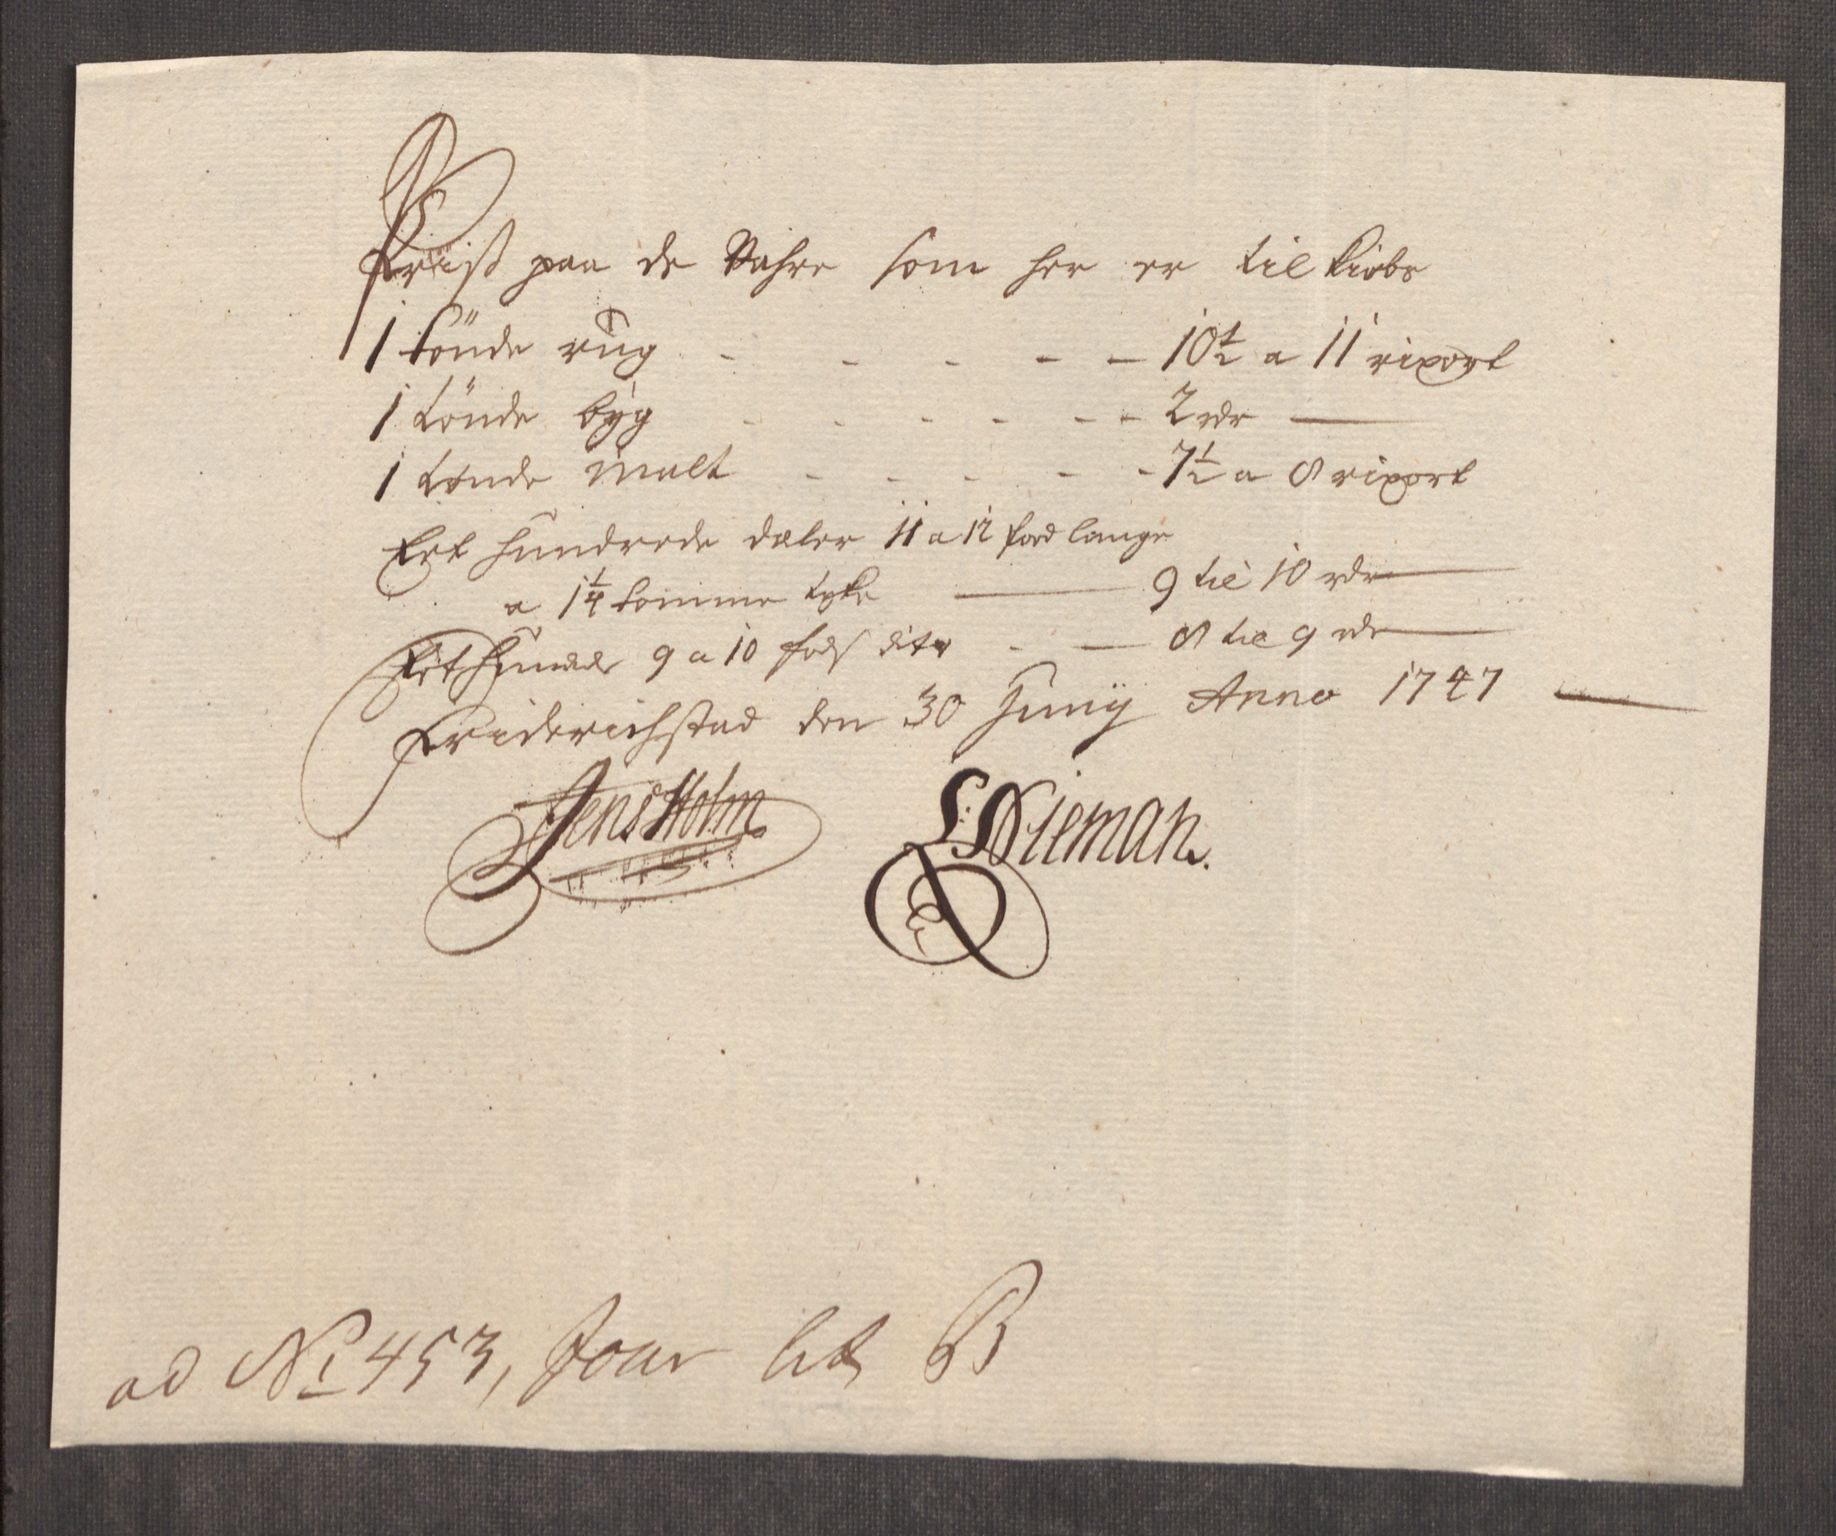 Priiss paa de Vahre som her er til kiøbs
1 tönde rug - - - - - 10½ a 11 rixort
1 tönde byg - - - - - - 2 rdr —
1 tønde malt - - - - - 7½ a 8 rixort
Eet hundrede dæler 11 a 12 foed lange
a 1¼ tomme tyke — 9 til 10 rdr —
Eet hundrede 9 a 10 fods dito - — 8 til 9 rdr —
Friderichstad den 30 Junij Anno 1747 —
Jens Holm S: Nieman.
ad No 453, Jour lit B